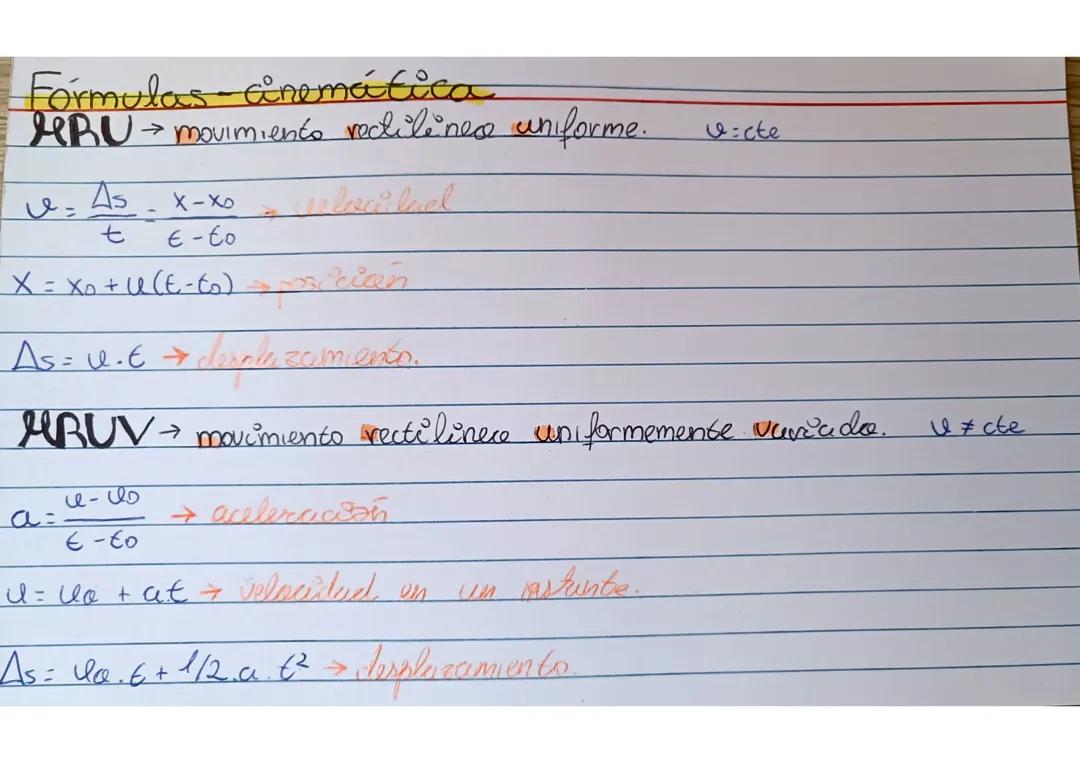 Fórmulas - cinemática
MRU → movimiento rectilíneo uniforme. v=cte
v = Δs/t = x-x0/t-t0 → velocidad
x = x0 + v(t-t0) → posición
Δs = v.t → desplazamiento.
MRUV → movimiento rectilíneo uniformemente variado. v ≠ cte
a = v-v0/t-t0 → aceleración
v = v0 + at → velocidad en un instante.
Δs = v0.t + 1/2.a.t² → desplazamiento.